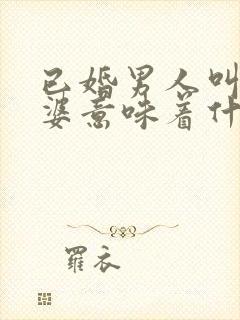 已婚男人叫
婆意味着什
羅衣